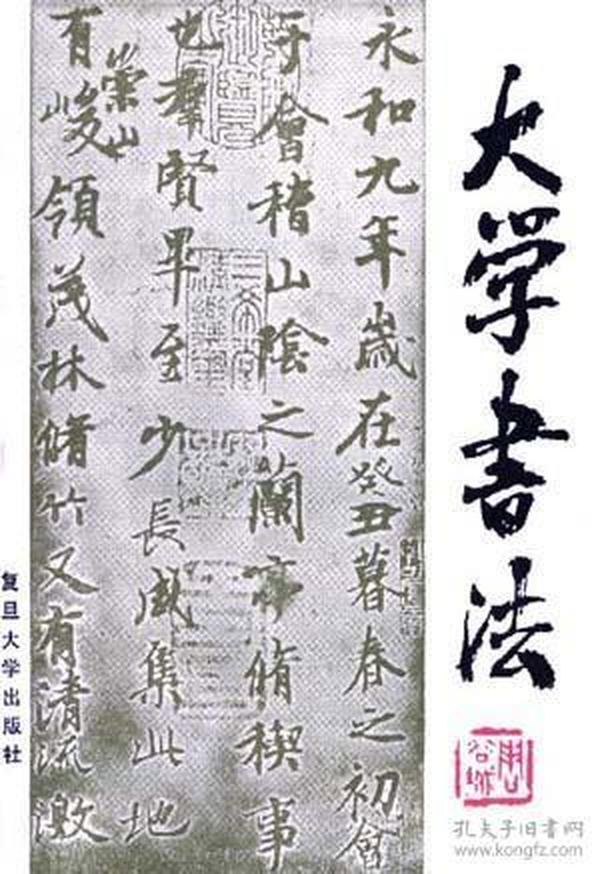 大学書法
永和九年歲在癸丑暮春之初會
于會稽山陰之蘭亭脩稧事
也羣賢畢至少長咸集此地
有崇山峻領茂林脩竹又有清流激
复旦大学出版社
周谷城
孔夫子旧書网
www.kongfz.com